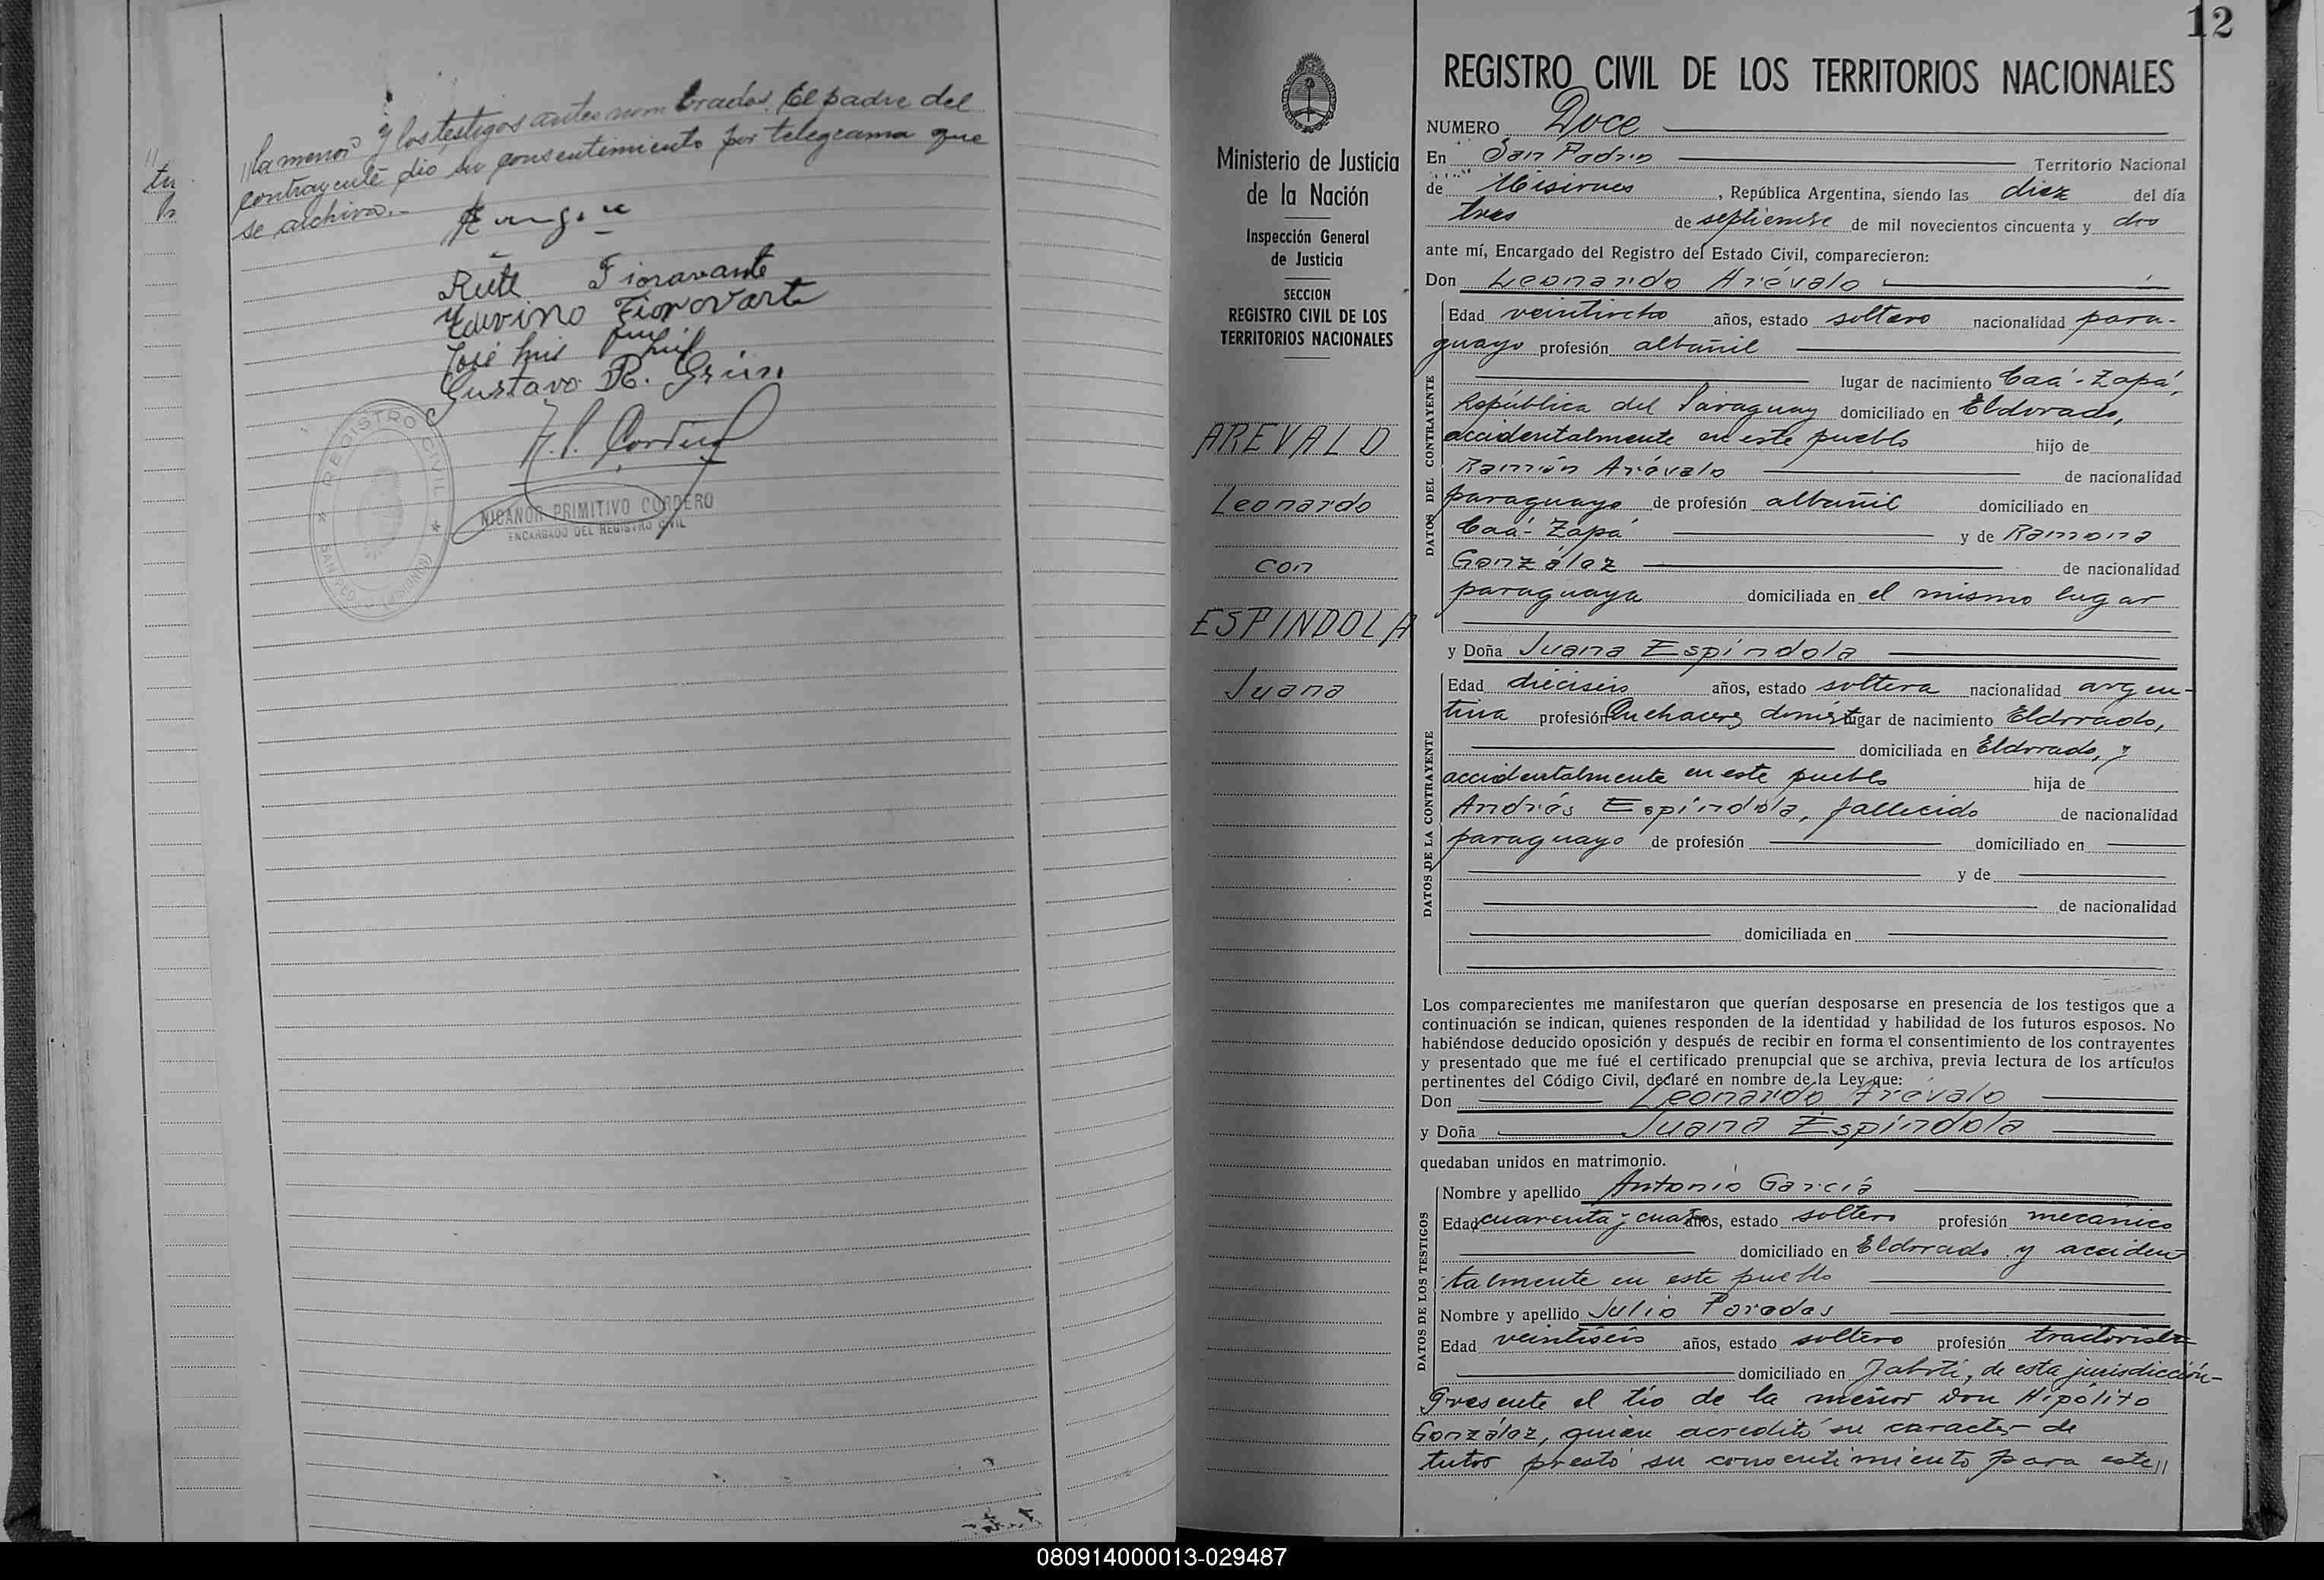 //la menor y los testigos antes nombrados. El padre del
contrayente dio su consentimiento por telegrama que
se archiva.-
Rute Fioravante
José Luis
Gustavo R. Grün
N. P. Cordero
REGISTRO CIVIL
NICANOR PRIMITIVO CORDERO
ENCARGADO DEL REGISTRO CIVIL
12
Ministerio de Justicia
de la Nación
Inspección General
de Justicia
SECCION
REGISTRO CIVIL DE LOS
TERRITORIOS NACIONALES
AREVALO
Leonardo
con
ESPINDOLA
Juana
REGISTRO CIVIL DE LOS TERRITORIOS NACIONALES
NUMERO Doce
En San Pedro Territorio Nacional
de Misiones, República Argentina, siendo las diez del día
tres de septiembre de mil novecientos cincuenta y dos
ante mí, Encargado del Registro del Estado Civil, comparecieron:
Don Leonardo Arévalo
DATOS DEL CONTRAYENTE
Edad veintiocho años, estado soltero nacionalidad para-
guayo profesión albañil
lugar de nacimiento Caá-Zapá,
República del Paraguay domiciliado en Eldorado,
accidentalmente en este pueblo hijo de
Ramón Arévalo de nacionalidad
paraguayo de profesión albañil domiciliado en
Caá-Zapá y de Ramona
González de nacionalidad
paraguaya domiciliada en el mismo lugar
y Doña Juana Espíndola
DATOS DE LA CONTRAYENTE
Edad dieciseis años, estado soltera nacionalidad argen-
tina profesión Quehaceres domést. lugar de nacimiento Eldorado,
domiciliada en Eldorado, y
accidentalmente en este pueblo hija de
Andrés Espíndola, fallecido de nacionalidad
paraguayo de profesión domiciliado en
y de
de nacionalidad
domiciliada en
Los comparecientes me manifestaron que querían desposarse en presencia de los testigos que a
continuación se indican, quienes responden de la identidad y habilidad de los futuros esposos. No
habiéndose deducido oposición y después de recibir en forma el consentimiento de los contrayentes
y presentado que me fué el certificado prenupcial que se archiva, previa lectura de los artículos
pertinentes del Código Civil, declaré en nombre de la Ley que:
Don Leonardo Arévalo
y Doña Juana Espíndola
quedaban unidos en matrimonio.
DATOS DE LOS TESTIGOS
Nombre y apellido Antonio García
Edad cuarenta y cuatro años, estado soltero profesión mecánico
domiciliado en Eldorado y acciden
talmente en este pueblo
Nombre y apellido Julio Paredes
Edad veintiséis años, estado soltero profesión tractorista
domiciliado en Jabotí, de esta jurisdicción-
Presente el tío de la menor Don Hipólito
González, quien acreditó su caracter de
tutor prestó su consentimiento para este//
080914000013-029487